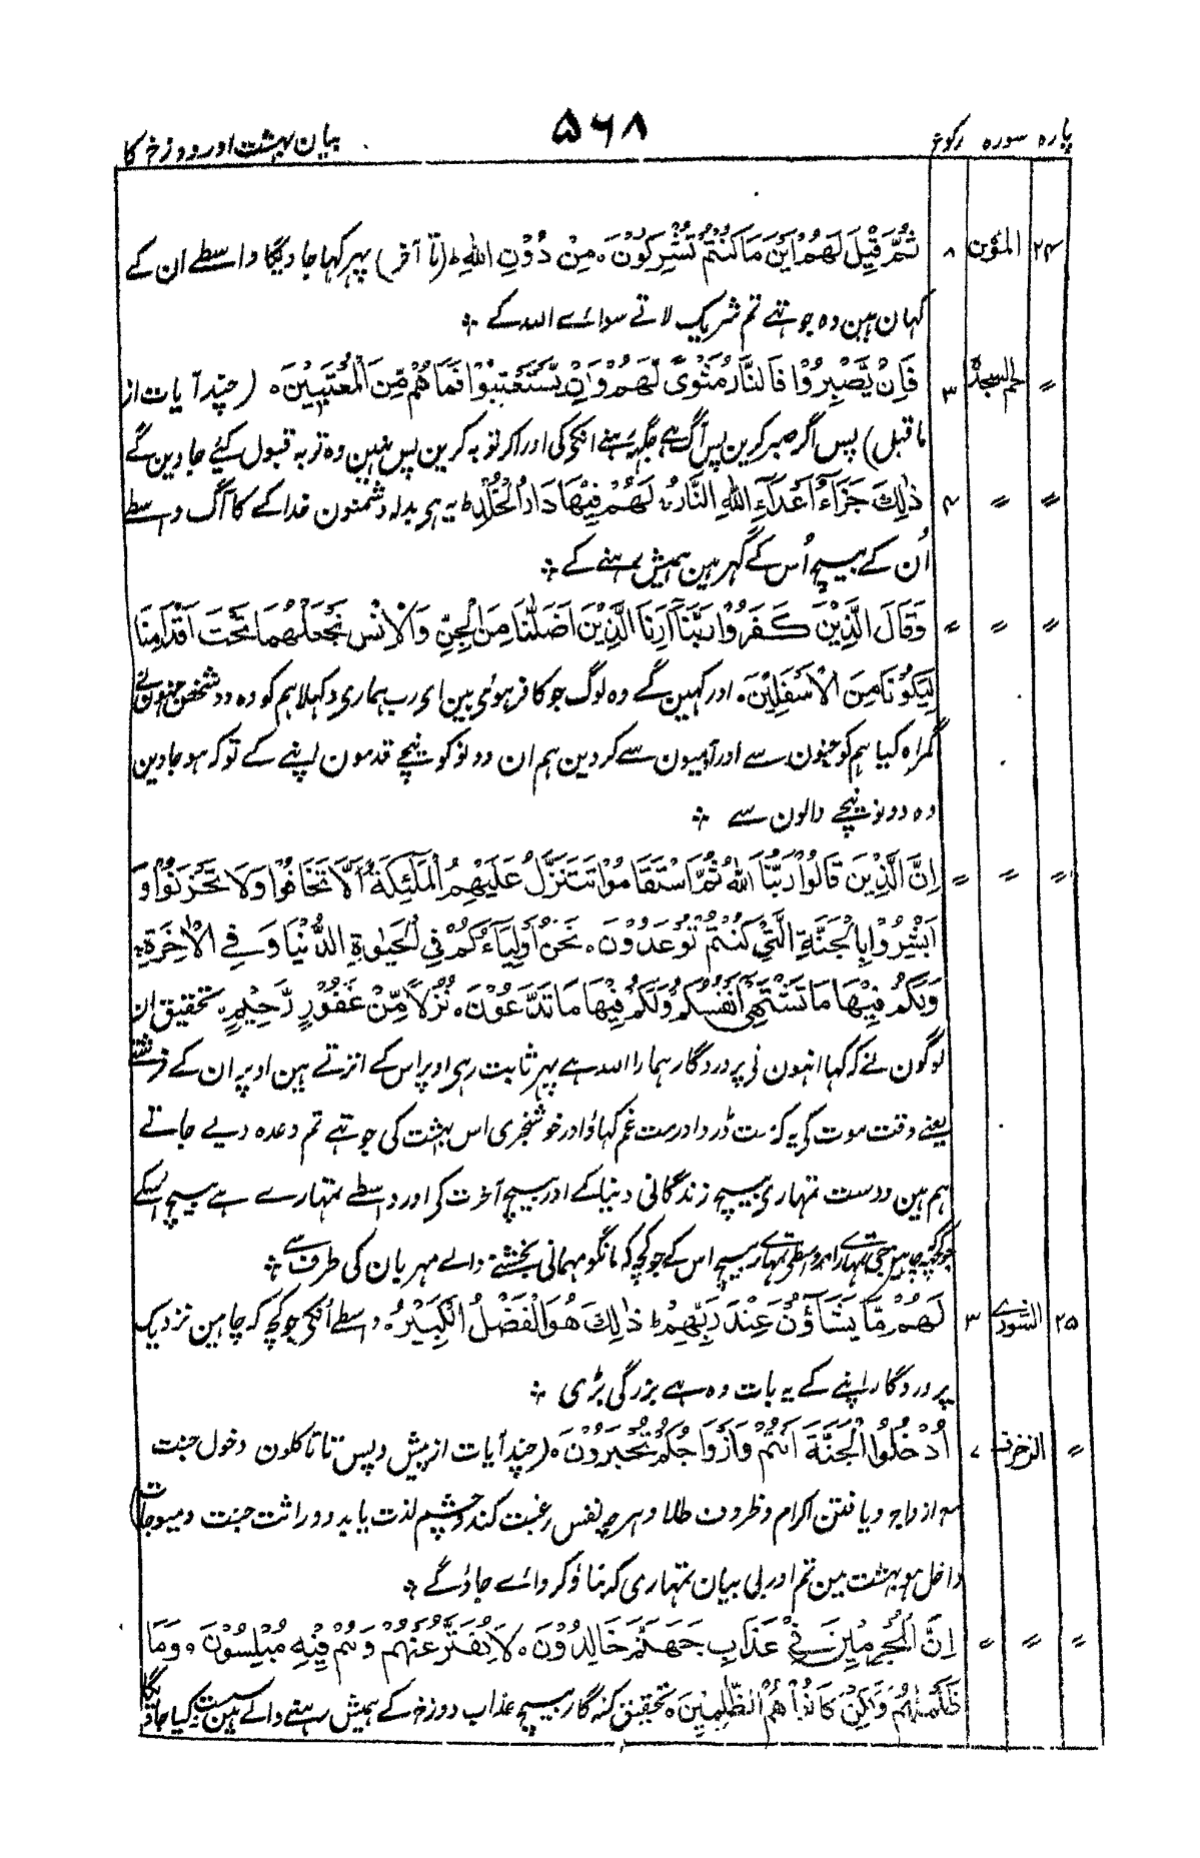 پارہ سورہ رکوع ۵۶۸ بیان بہشت اور دوزخ کا
۲۴ المؤمن ۸ ثُمَّ قِيْلَ لَهُمْ اَيْنَ مَا كُنْتُمْ تُشْرِكُوْنَ ۰ مِنْ دُوْنِ اللهِ ط (تا آخر) پہر کہا جاویگا واسطے ان کے
کہان ہین وہ جو تہے تم شریک لاتے سوائے اللہ کے ۞
〃 حم السجدۃ ۳ فَاِنْ يَّصْبِرُوْا فَالنَّارُ مَثْوًى لَّهُمْ وَاِنْ يَّسْتَعْتِبُوْا فَمَا هُمْ مِّنَ الْمُعْتَبِيْنَ ۰ (چند آیات از
ماقبل) پس اگر صبر کرین پس آگ ہے جگہ رہنے انکی کی اور اگر توبہ کرین پس نہین وہ توبہ قبول کیئے جاوین گے
〃 〃 ۴ ذٰلِكَ جَزَآءُ اَعْدَآءِ اللهِ النَّارُ ۚ لَهُمْ فِيْهَا دَارُ الْخُلْدِ ط یہ ہی بدلہ دشمنون خدا کے کا آگ واسطے
اُن کے بیچ اُس کے گہر ہین ہمیش رہنے کے ۞
〃 〃 〃 وَقَالَ الَّذِيْنَ كَفَرُوْا رَبَّنَآ اَرِنَا الَّذَيْنِ اَضَلّٰنَا مِنَ الْجِنِّ وَالْاِنْسِ نَجْعَلْهُمَا تَحْتَ اَقْدَامِنَا
لِيَكُوْنَا مِنَ الْاَسْفَلِيْنَ ۰ اور کہین گے وہ لوگ جو کافر ہوئی ہین ای رب ہماری دکہلا ہم کو وہ دو شخص جنہون نے
گمراہ کیا ہم کو جنون سے اور آدمیون سے کر دین ہم ان دونو کو نیچے قدمون اپنے کے تو کہ ہو جاوین
وہ دونو نیچے والون سے ۞
〃 〃 〃 اِنَّ الَّذِيْنَ قَالُوْا رَبُّنَا اللهُ ثُمَّ اسْتَقَامُوْا تَتَنَزَّلُ عَلَيْهِمُ الْمَلٰٓئِكَةُ اَلَّا تَخَافُوْا وَلَا تَحْزَنُوْا وَ
اَبْشِرُوْا بِالْجَنَّةِ الَّتِيْ كُنْتُمْ تُوْعَدُوْنَ ۰ نَحْنُ اَوْلِيَآءُكُمْ فِي الْحَيٰوةِ الدُّنْيَا وَفِي الْاٰخِرَةِ ۚ
وَلَكُمْ فِيْهَا مَا تَشْتَهِيْ اَنْفُسُكُمْ وَلَكُمْ فِيْهَا مَا تَدَّعُوْنَ ۰ نُزُلًا مِّنْ غَفُوْرٍ رَّحِيْمٍ ۰ تحقیق ان
لوگون نے کہ کہا انہون نی پروردگار ہمارا اللہ ہے پہر ثابت رہی اوپر اس کے اترتے ہین اوپر ان کے فرشتے
یعنے وقت موت کی یہ کہ مت ڈرو اور مت غم کہاؤ اور خوشخبری اس بہشت کی جو تہے تم وعدہ دیے جاتے
ہم ہین دوست تمہاری بیچ زندگانی دنیا کے اور بیچ آخرت کی اور واسطے تمہارے ہے بیچ اسکے
جو کچہ چاہین جی تمہارے اور واسطے تمہارے بیچ اس کے جو کچہ کہ مانگو مہمانی بخشنے والے مہربان کی طرف سے ۞
۲۵ الشورے ۳ لَهُمْ مَّا يَشَآؤُنَ عِنْدَ رَبِّهِمْ ط ذٰلِكَ هُوَ الْفَضْلُ الْكَبِيْرُ ۰ واسطے اُنکی جو کچہ کہ چاہین نزدیک
پروردگار اپنے کے یہ بات وہ ہے بزرگی بڑی ۞
〃 الزخرف ۷ اُدْخُلُوا الْجَنَّةَ اَنْتُمْ وَاَزْوَاجُكُمْ تُحْبَرُوْنَ ۰ (چند آیات از پیش و پس تا تاکلون دخول جنت
مع ازواج و یافتن اکرام و ظروف طلا و ہرچہ نفس رغبت کند و چشم لذت یابد و وراثت جنت و میوجات)
داخل ہو بہشت مین تم اور بی بیان تمہاری کہ بناؤ کروائے جاؤ گے ۞
〃 〃 〃 اِنَّ الْمُجْرِمِيْنَ فِيْ عَذَابِ جَهَنَّمَ خَالِدُوْنَ ۰ لَا يُفَتَّرُ عَنْهُمْ وَهُمْ فِيْهِ مُبْلِسُوْنَ ۰ وَمَا
ظَلَمْنٰهُمْ وَلٰكِنْ كَانُوْا هُمُ الظّٰلِمِيْنَ ۰ تحقیق گنہگار بیچ عذاب دوزخ کے ہمیش رہنے والے ہین کیا جاویگا